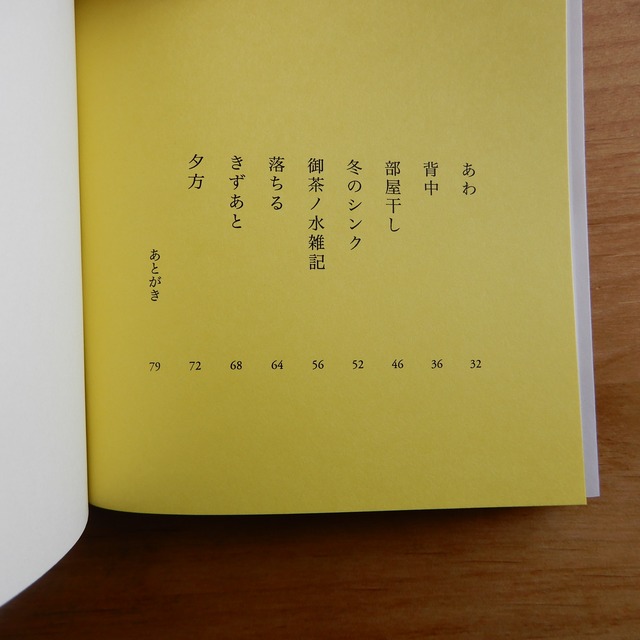 あわ 32
背中 36
部屋干し 46
冬のシンク 52
御茶ノ水雑記 56
落ちる 64
きずあと 68
夕方 72
あとがき 79